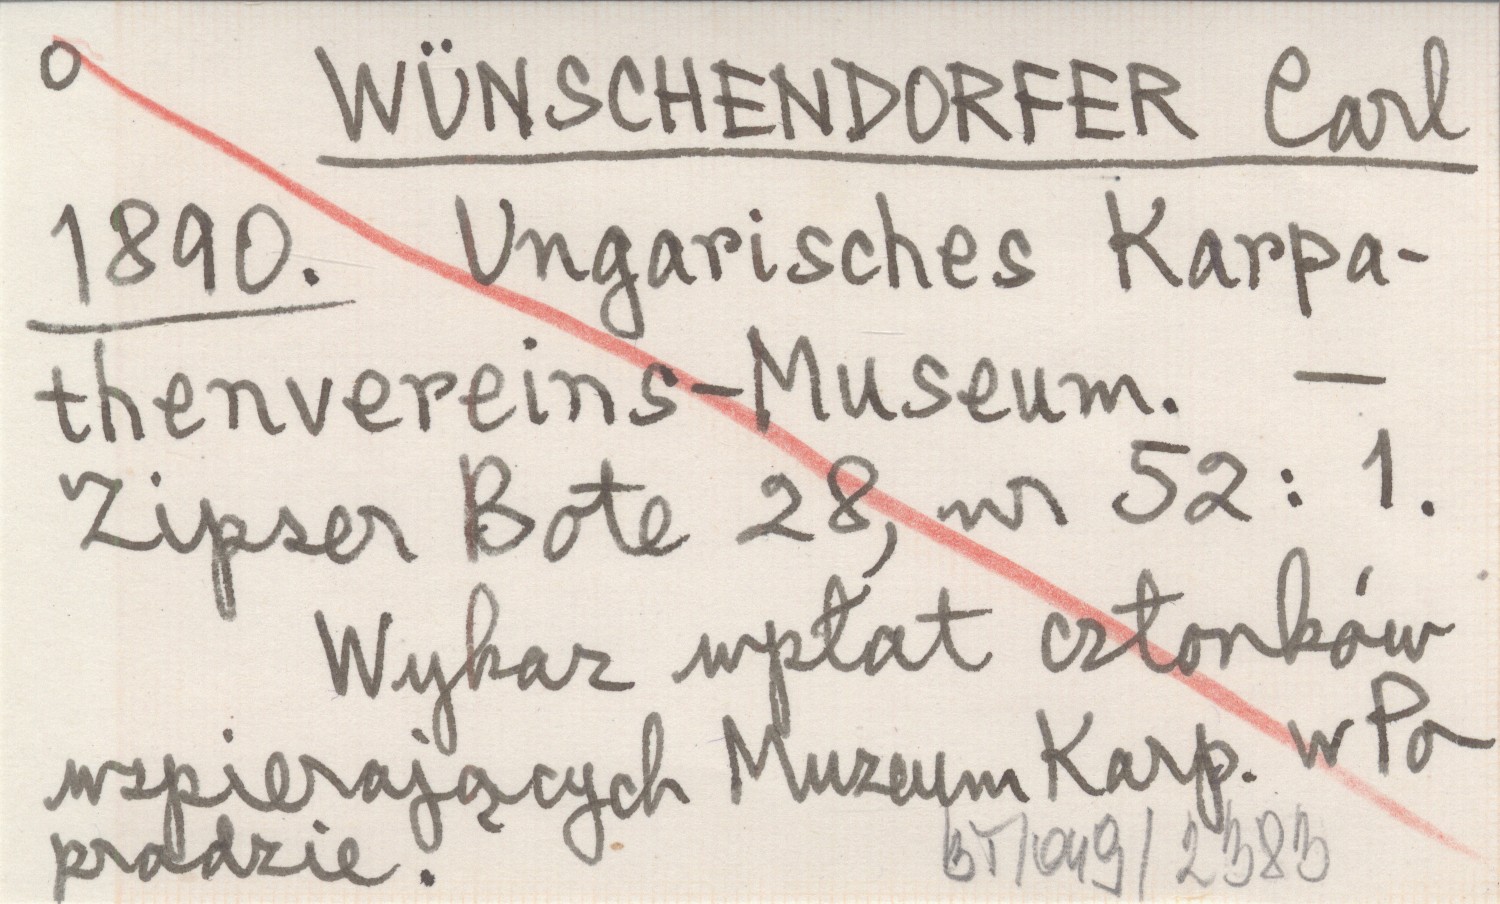 o WÜNSCHENDORFER Carl
1890. Ungarisches Karpa-
thenvereins-Museum. —
Zipser Bote 28, nr 52: 1.
Wykaz wpłat członków
wspierających Muzeum Karp. w Po-
pradzie.
BT/049/2383